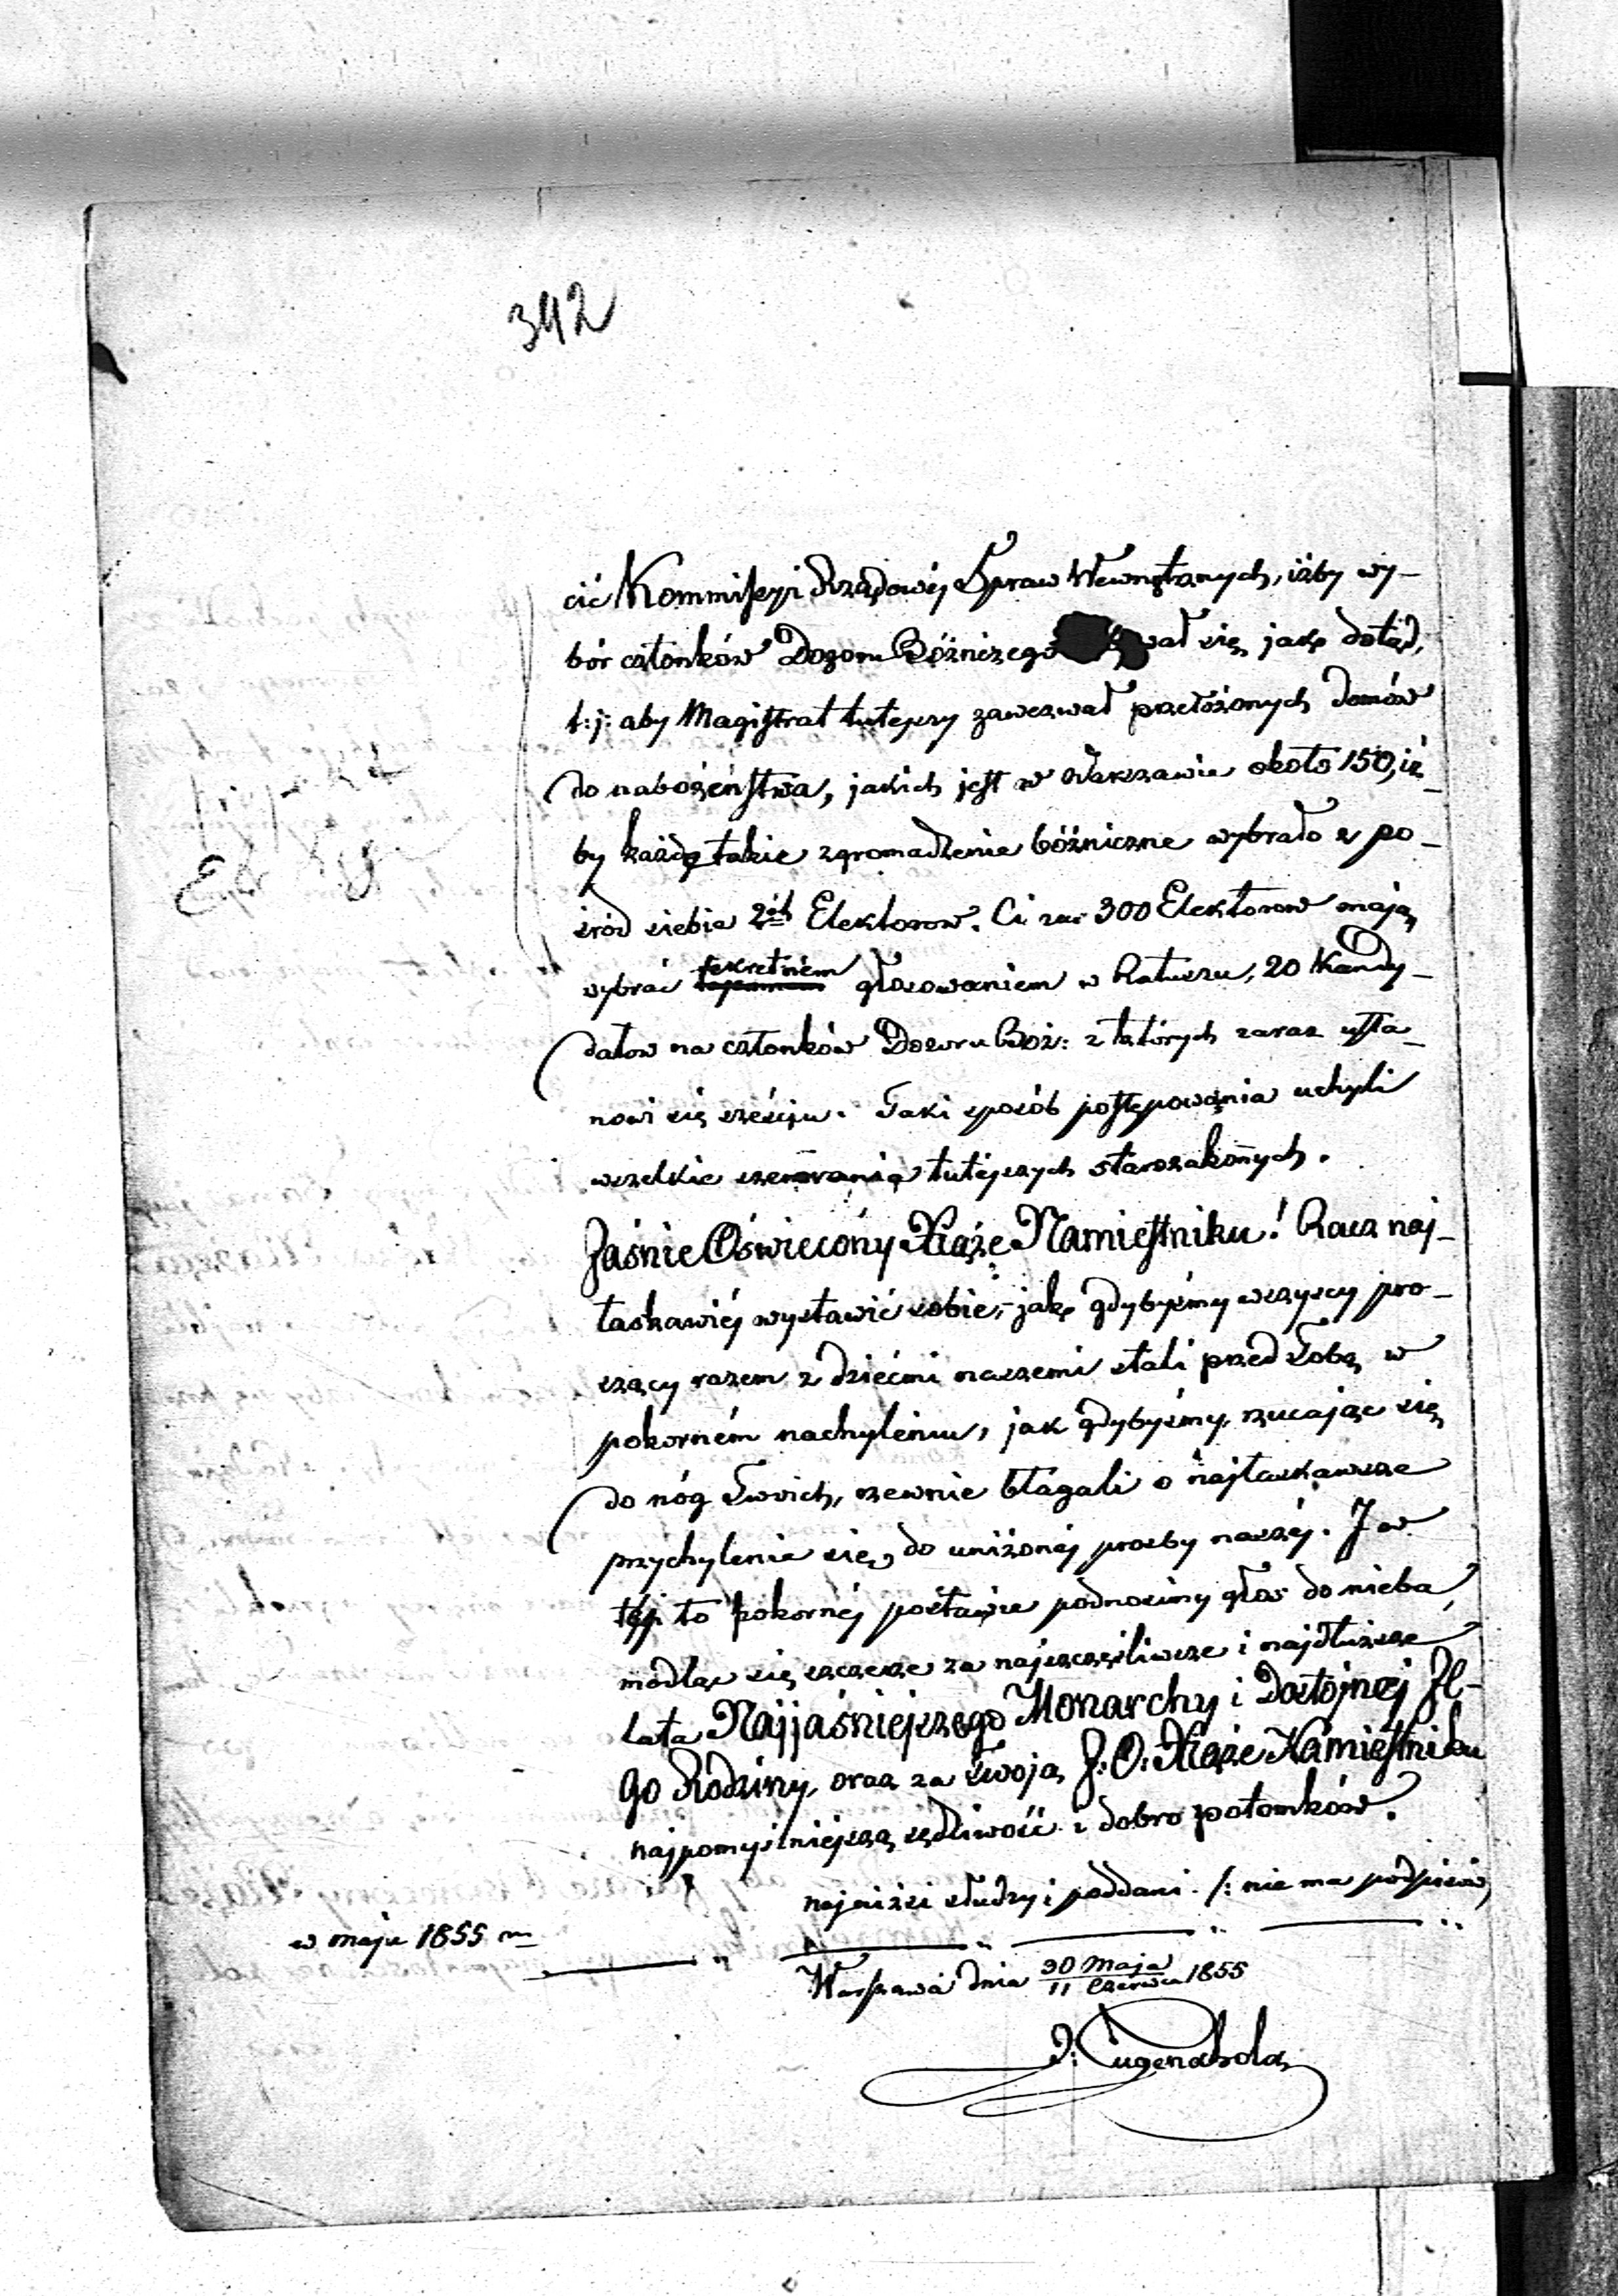 342
cić Kommissyi Rządowéj Spraw Wewnętrznych, iżby wy-
bór członków Dozoru Bóżniczego wał się, jak dotąd,
t:j: aby Magistrat tutejszy zawezwał przełożonych domów
do nabożeństwa, jakich jest w Warszawie około 150, iż-
by każde takie zgromadzenie bóżniczne wybrało z po-
śród siebie 2ch Elektorow. Ci zaś 300 Elektorow mają
wybrać sekretném głosowaniem w Ratuszu, 20 Kandy-
datow na członków Dozoru Boż: z których zaraz usta-
nowi się sześciu. Taki sposób postępowania uchyli
wszelkie szemrania tutejszych starozakonnych.
Jaśnie Oświecony Xiąże Namiestniku! Racz naj-
łaskawiéj wystawić sobie, jak gdybyśmy wszyscy pro-
szący razem z dziećmi naszemi stali przed Tobą w
pokorném nachyleniu, jak gdybyśmy, rzucając się
do nóg Twoich, rzewnie błagali o najłaskawsze
przychylenie się, do uniżonéj prośby naszéj. I w
téj to pokornéj postawie podnosimy głos do nieba,
modląc się szczerze za najszczęśliwsze i najdłuższe
lata Najjaśniejszego Monarchy i Dostojnéj Je-
go Rodziny, oraz za twoją J:O: Xiąże Namiestniku
najpomyślniejszą sędziwość i dobro potomków.
najniżsi słudzy i poddani. /: nie ma podpisów
w maju 1855 r
Warszawa dnia 30 Maja / 11 Czerwca 1855
J: Tugenhold